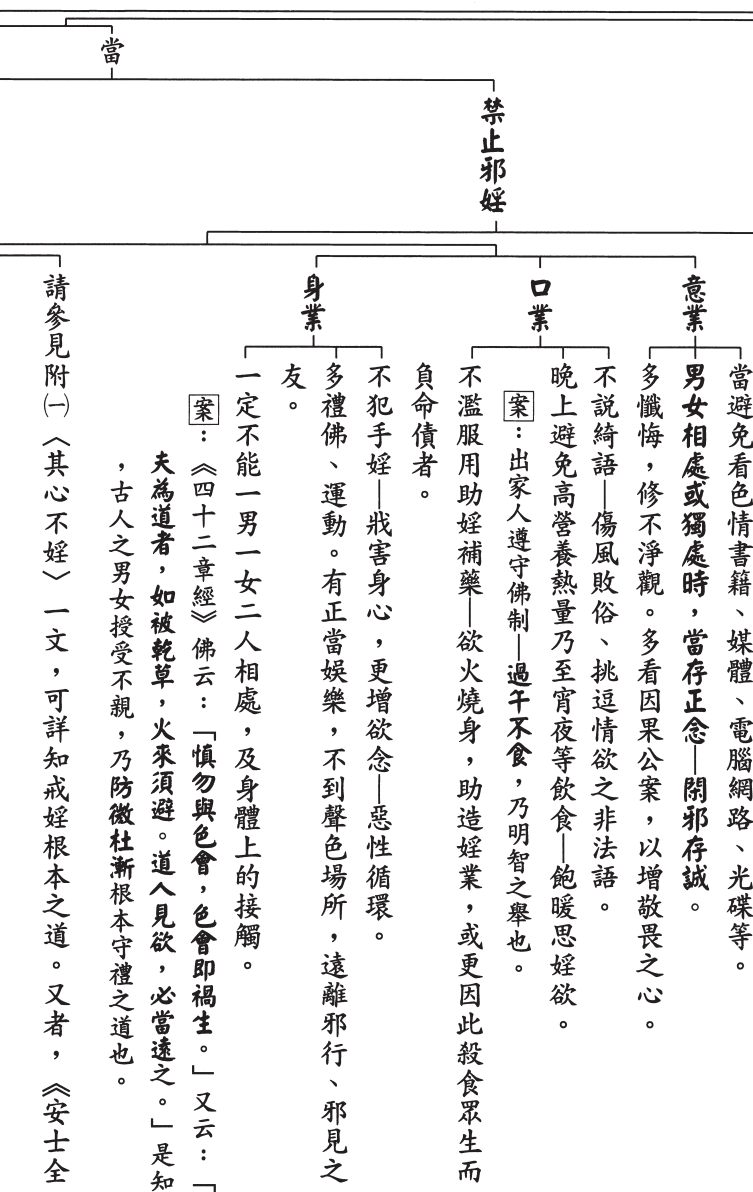 當
禁止邪婬
意業
當避免看色情書籍、媒體、電腦網路、光碟等。
男女相處或獨處時，當存正念—閑邪存誠。
多懺悔，修不淨觀。多看因果公案，以增敬畏之心。
口業
不說綺語—傷風敗俗、挑逗情欲之非法語。
晚上避免高營養熱量乃至宵夜等飲食—飽暖思婬欲。
案：出家人遵守佛制—過午不食，乃明智之舉也。
不濫服用助婬補藥—欲火燒身，助造婬業，或更因此殺食眾生而
負命債者。
身業
不犯手婬—戕害身心，更增欲念—惡性循環。
多禮佛、運動。有正當娛樂，不到聲色場所，遠離邪行、邪見之
友。
一定不能一男一女二人相處，及身體上的接觸。
案：《四十二章經》佛云：「慎勿與色會，色會即禍生。」又云：「
夫為道者，如被乾草，火來須避。道人見欲，必當遠之。」是知
，古人之男女授受不親，乃防微杜漸根本守禮之道也。
請參見附㈠〈其心不婬〉一文，可詳知戒婬根本之道。又者，《安士全